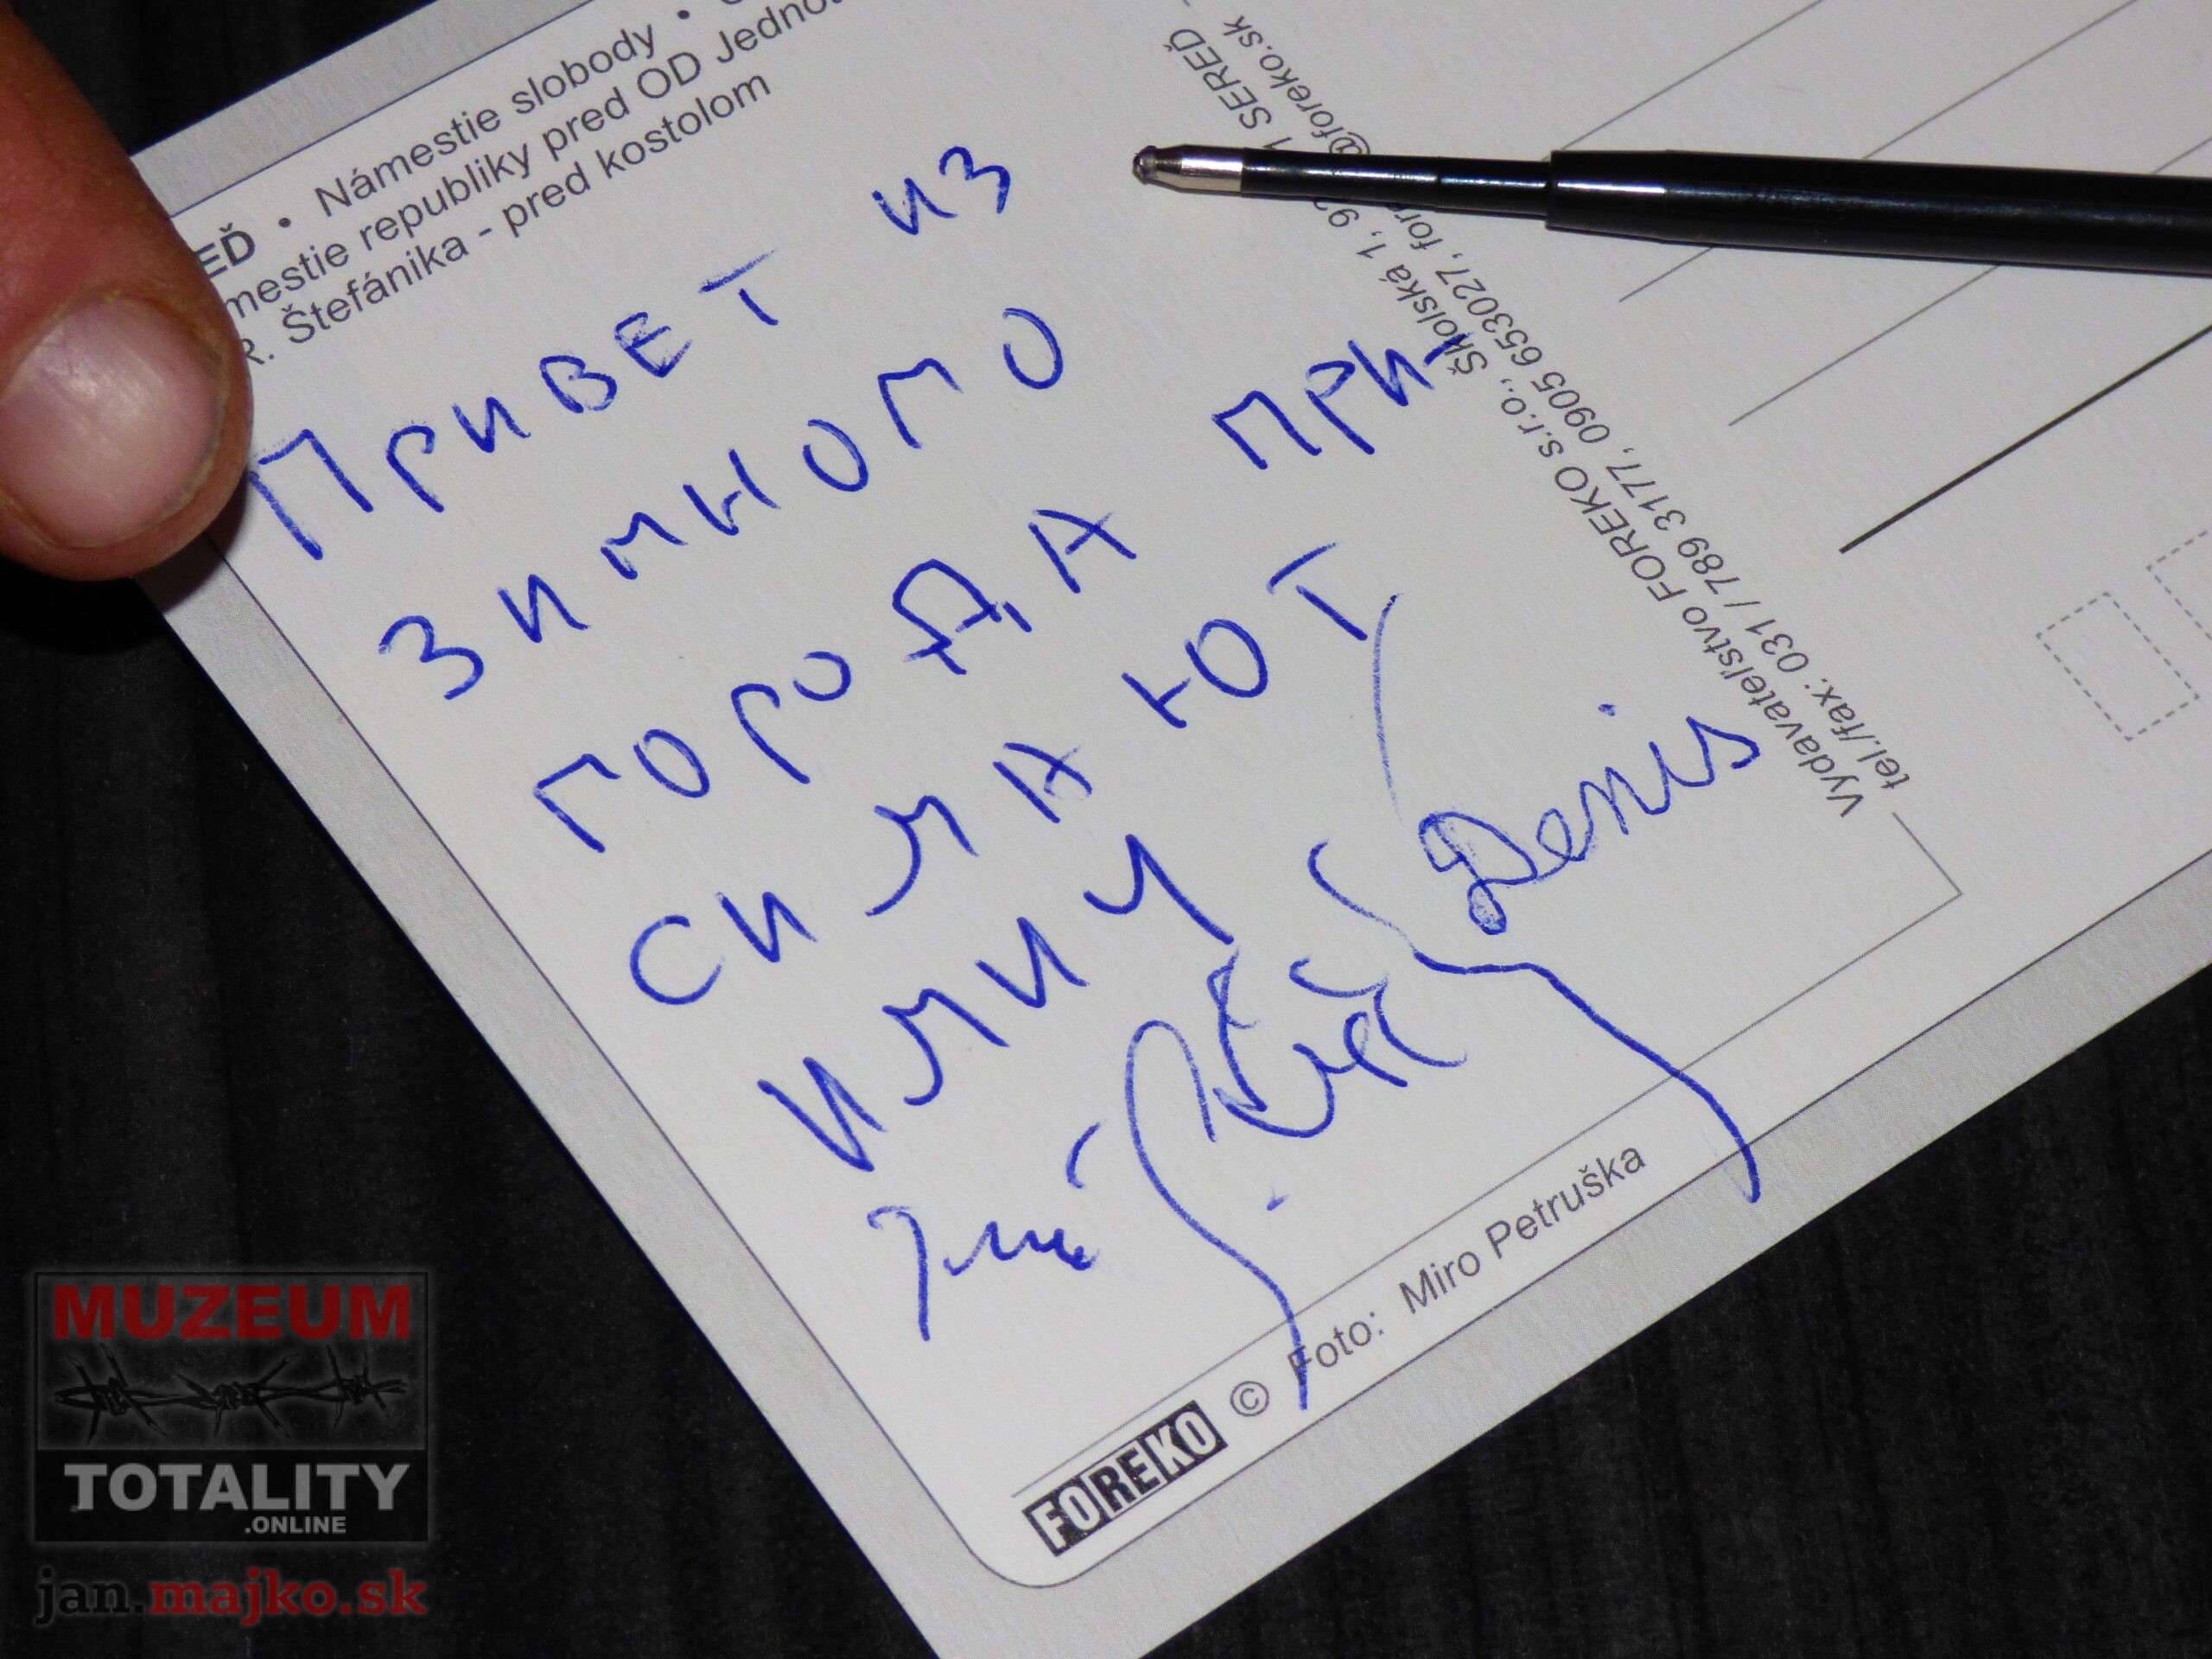 EĎ • Námestie slobody •
mestie republiky pred OD Jedno
R. Štefánika - pred kostolom
ПРИВЕТ ИЗ
ЗИМНОГО
ГОРОДА ПРИ
СИЛАЮТ
ИЛИЧ
Denis
1 SEREĎ
@foreko.sk
Vydavateľstvo FOREKO s.r.o., Školská 1, 92
tel./fax: 031 / 789 3177, 0905 653027, for
FOREKO © Foto: Miro Petruška
MUZEUM
TOTALITY
.ONLINE
jan.majko.sk